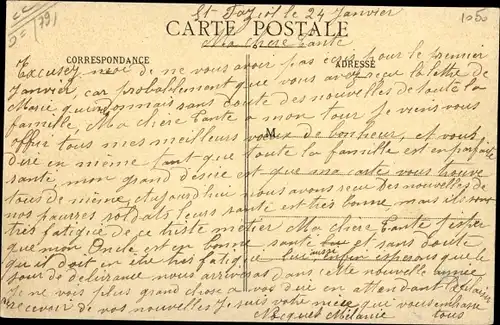 DC (79)
1050
St Fazeil le 24 Janvier
CARTE POSTALE
Ma chere Tante
CORRESPONDANCE
ADRESSE
Excusez moi de ne vous avoir pas ecris pour le premier
Janvier, car probablement que vous avez reçu la lettre de
Marie qui donnais sans doute des nouvelles de toute la
famille, Ma chère Tante a mon tour je viens vous
offrir tous mes meilleurs vœux de bonheur, et vous
M
dire en même tant que toute la famille est en parfaite
santé, mon grand désire est que ma carte vous trouve
tous de même, aujourd'hui nous avons reçu des nouvelles de
nos pauvres soldats leurs santé est très bonne mais ils sont
très fatigué de ce triste metier Ma chere Tante j'espèr
que mon Oncle est en bonne santé et sans doute
qu'il doit en être très fatigué lui aussi enfin esperons que le
jour de délivrance nous arriveras dans cette nouvelle année
Je ne vois plus grand chose a vous dire en attendant le plaisir
recevoir de vos nouvelles Je suis votre nièce qui vous embrasse
Nocques Mélanie tous